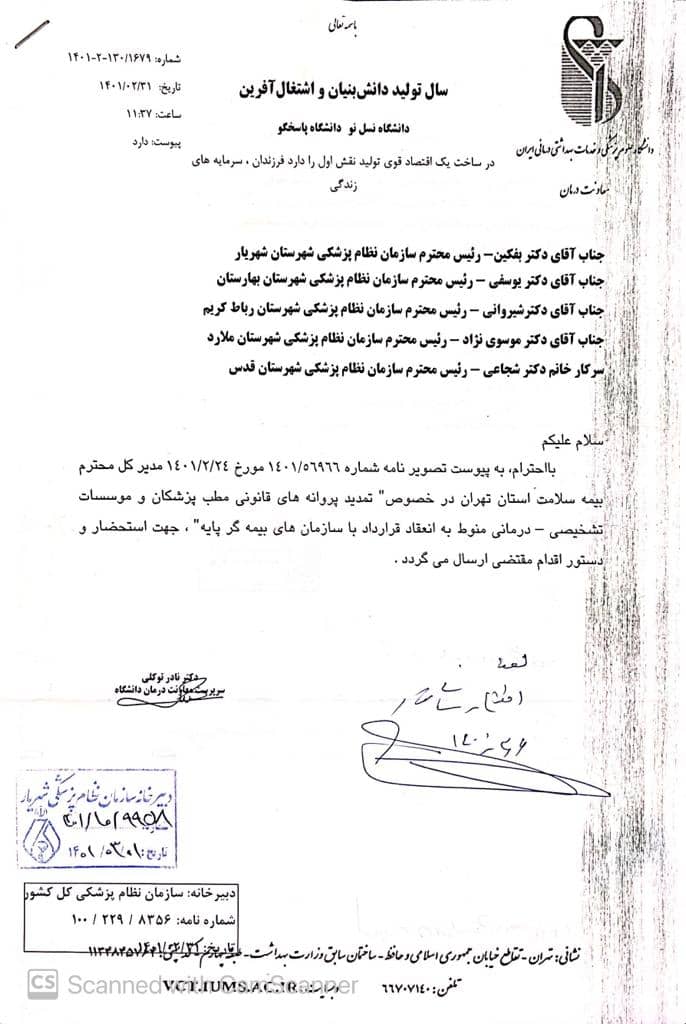 باسمه تعالی
شماره: ۱۴۰۱-۲-۱۳۰/۱۶۷۹
تاریخ: ۱۴۰۱/۰۲/۳۱
ساعت: ۱۱:۳۷
پیوست: دارد
سال تولید دانش‌بنیان و اشتغال‌آفرین
دانشگاه نسل نو دانشگاه پاسخگو
در ساخت یک اقتصاد قوی تولید نقش اول را دارد فرزندان ، سرمایه های
زندگی
دانشگاه علوم پزشکی و خدمات بهداشتی درمانی ایران
معاونت درمان
جناب آقای دکتر یفکین– رئیس محترم سازمان نظام پزشکی شهرستان شهریار
جناب آقای دکتر یوسفی – رئیس محترم سازمان نظام پزشکی شهرستان بهارستان
جناب آقای دکترشیروانی – رئیس محترم سازمان نظام پزشکی شهرستان رباط کریم
جناب آقای دکتر موسوی نژاد – رئیس محترم سازمان نظام پزشکی شهرستان ملارد
سرکار خانم دکتر شجاعی – رئیس محترم سازمان نظام پزشکی شهرستان قدس
سلام علیکم
بااحترام، به پیوست تصویر نامه شماره ۱۴۰۱/۵۶۹۶۶ مورخ ۱۴۰۱/۲/۲۴ مدیر کل محترم
بیمه سلامت استان تهران در خصوص" تمدید پروانه های قانونی مطب پزشکان و موسسات
تشخیصی – درمانی منوط به انعقاد قرارداد با سازمان های بیمه گر پایه" ، جهت استحضار و
دستور اقدام مقتضی ارسال می گردد .
دکتر نادر توکلی
سرپرست معاونت درمان دانشگاه
دبیرخانه سازمان نظام پزشکی شهریار
تاریخ: ۱۴۰۱/۰۳/۰۱
دبیرخانه: سازمان نظام پزشکی کل کشور
شماره نامه: ۸۳۵۶ / ۲۲۹ / ۱۰۰
تاریخ:
نشانی: تهران - تقاطع خیابان جمهوری اسلامی و حافظ - ساختمان سابق وزارت بهداشت -
تلفن: ۶۶۷۰۷۱۴۰ وب سایت: VCT.IUMS.AC.IR
CS Scanned with CamScanner